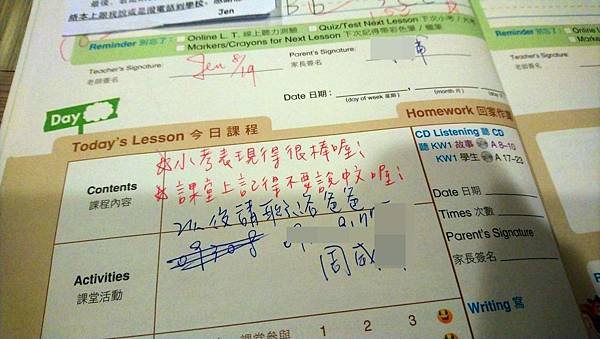 最後,
絡本上跟我說或是撥電話到學校,
Jen
Reminder 別忘了:
Online L. T. 線上聽力測驗
Quiz/Test Next Lesson 下次小考/
Markers/Crayons for Next Lesson 下次記得帶彩色筆 / 蠟筆
Teacher's Signature:
老師簽名
Jen 8/19
Parent's Signature:
家長簽名
Date 日期:
(day of week 星期)
(month 月)
Day
Reminder 別忘了:
Online
Markers
Teacher's Signature:
老師簽名
Today's Lesson 今日課程
Homework 回家作業
Contents
課程內容
小考表現得很棒喔!
課堂上記得不要說中文喔!
以後請聯絡爸爸
周威
Activities
課堂活動
CD Listening 聽 CD
聽 KW1 故事 A 8~10
KW1 學生 A 17~23
Date 日期
Times 次數
Parent's Signature
家長簽名
Writing 寫
課堂參與
1 2 3